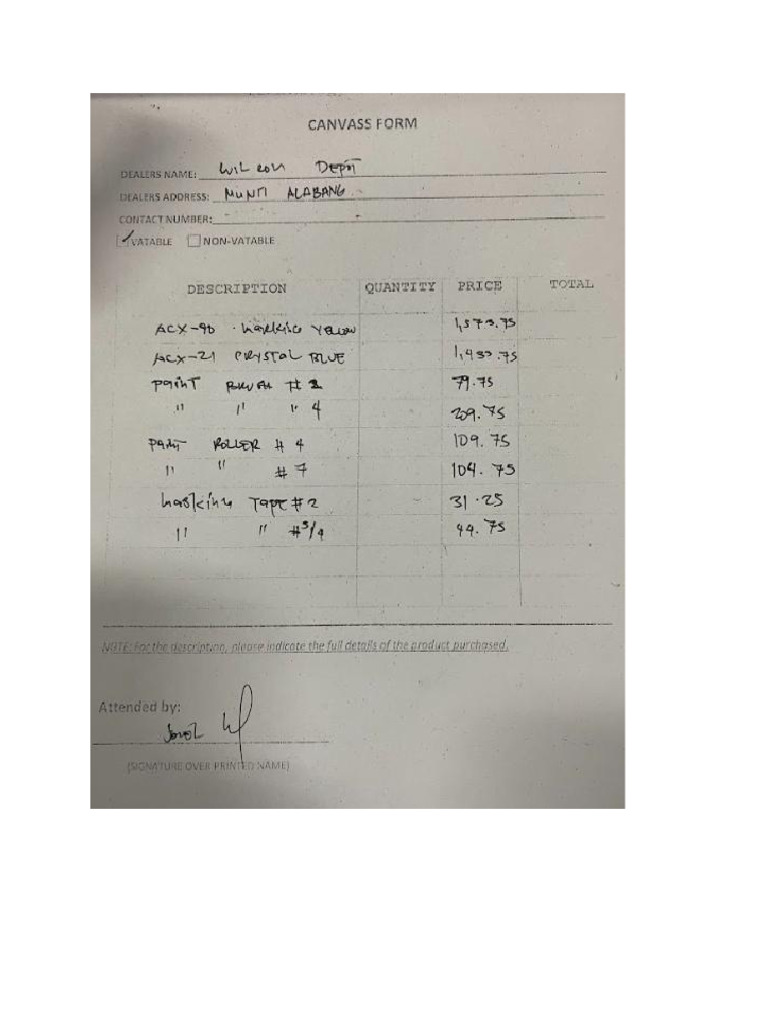 CANVASS FORM
DEALERS NAME: WILCON DEPOT
DEALERS ADDRESS: MUNTI ALABANG
CONTACT NUMBER: -
✓ VATABLE NON-VATABLE
DESCRIPTION QUANTITY PRICE TOTAL
ACX-90 Yellow 1,573.75
ACX-21 CRYSTAL BLUE 1,433.75
paint BRUSH # 2 79.75
" " " 4 209.75
paint ROLLER # 4 109.75
" " # 7 104.75
Masking TAPE # 2 31.25
" " # 3/4 44.75
NOTE: For the description, please indicate the full details of the product purchased.
Attended by:
(SIGNATURE OVER PRINTED NAME)